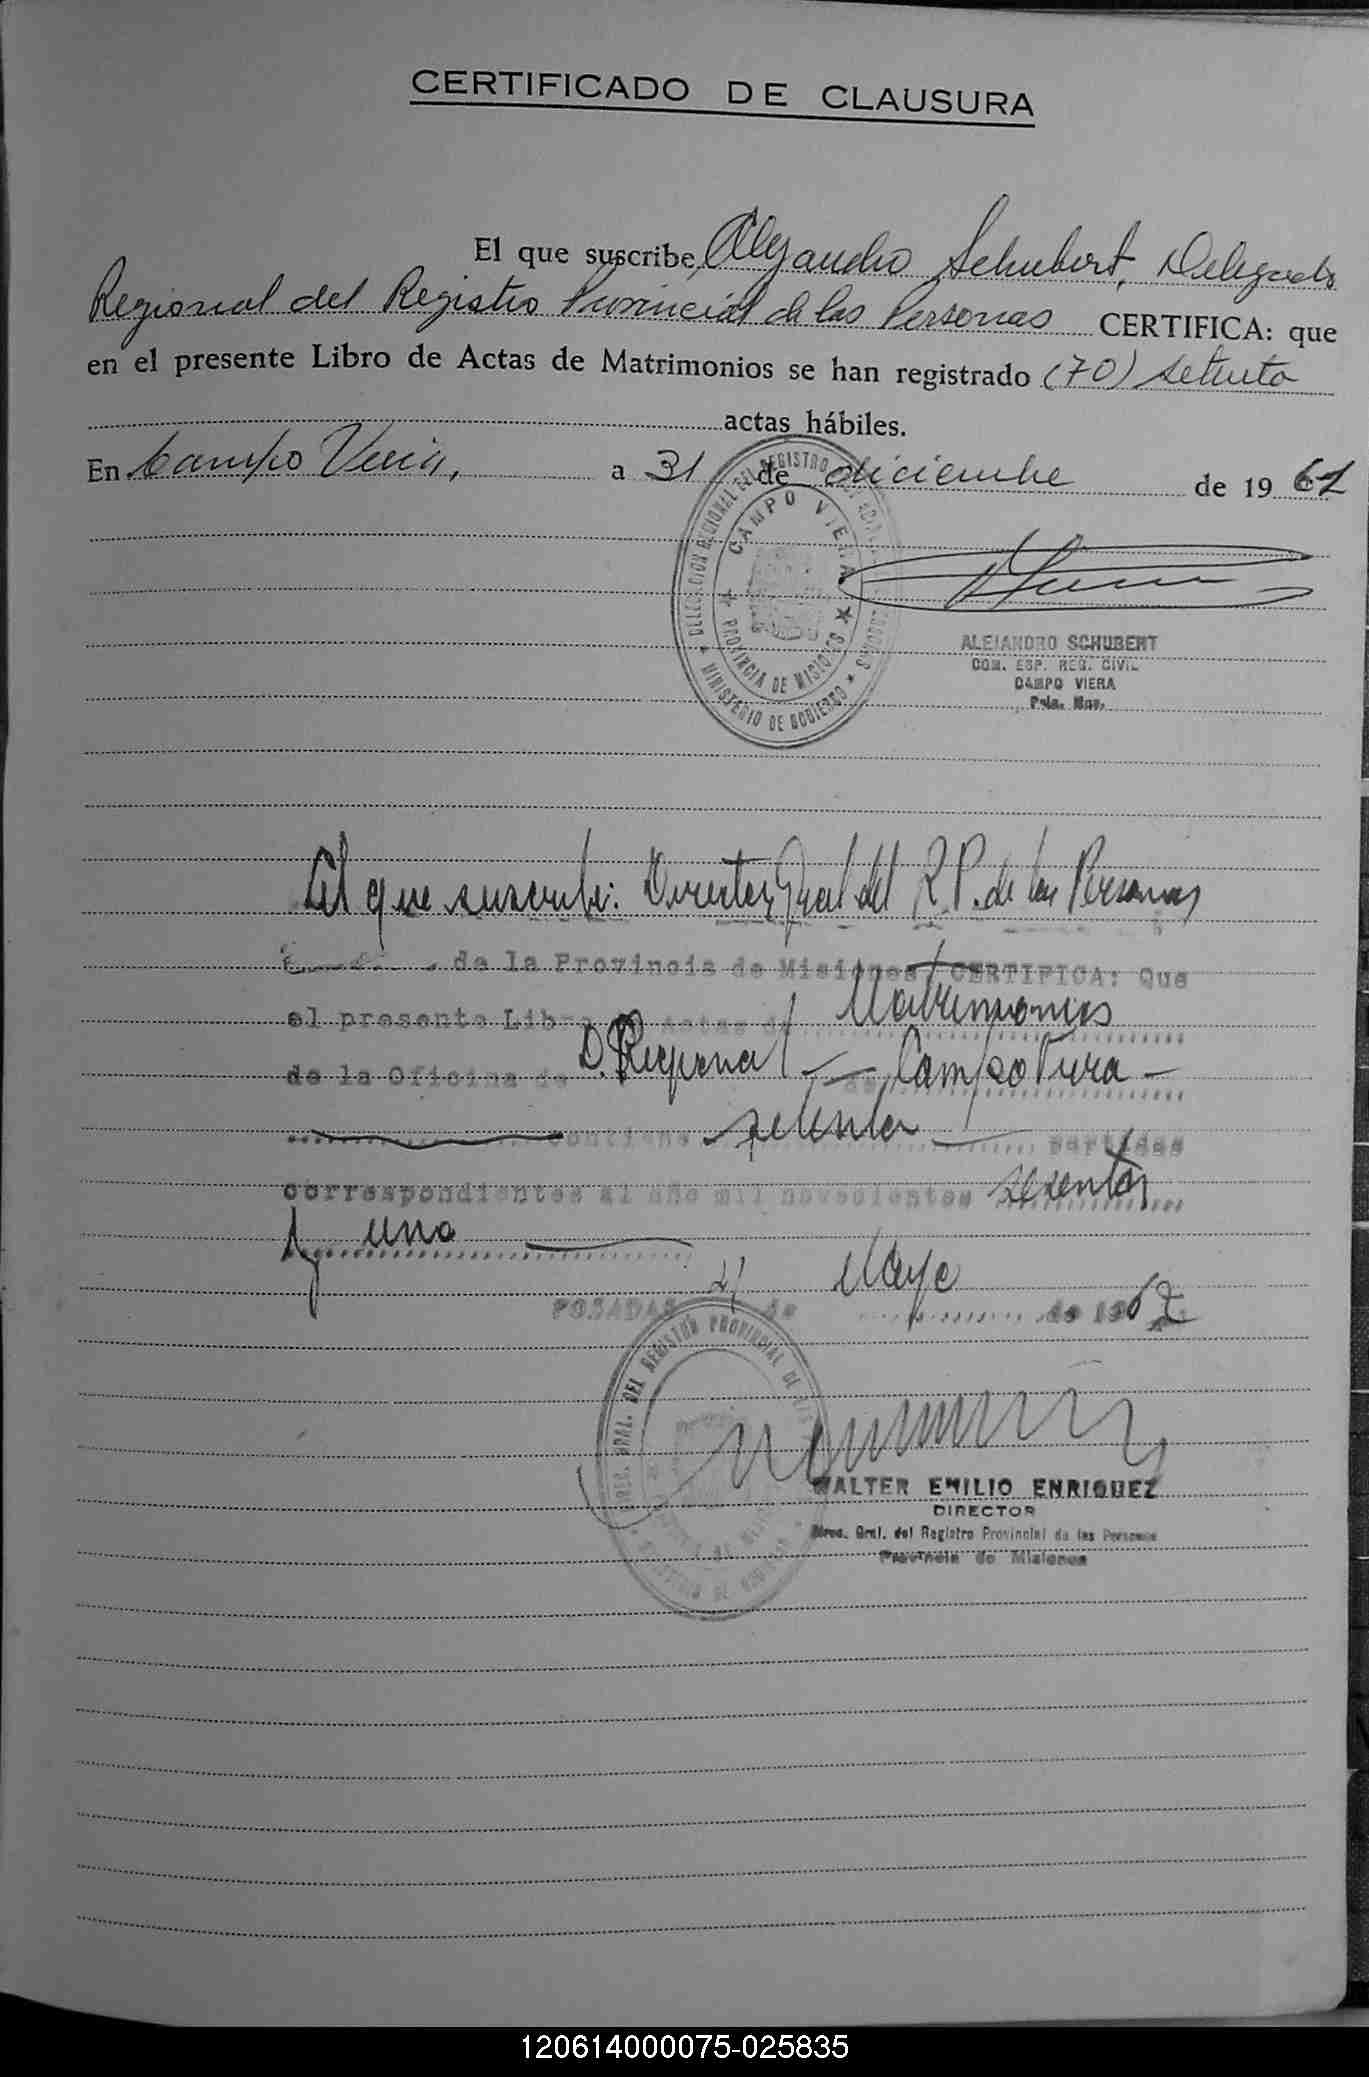 CERTIFICADO DE CLAUSURA
El que suscribe, Alejandro Schubert, Delegado
Regional del Registro Provincial de las Personas CERTIFICA: que
en el presente Libro de Actas de Matrimonios se han registrado (70) setenta
actas hábiles.
En Campo Viera, a 31 de diciembre de 1961
DELEGACION REGIONAL DEL REGISTRO
CAMPO VIERA
PROVINCIA DE MISIONES
MINISTERIO DE GOBIERNO
ALEJANDRO SCHUBERT
COM. ESP. REG. CIVIL
CAMPO VIERA
Pcia. Mnes.
El que suscribe: Director Gral del R. P. de las Personas
de la Provincia de Misiones, CERTIFICA: Que
el presente Libro de Actas de Matrimonios
de la Oficina de D. Regional de Campo Viera
contiene setenta partidas
correspondientes al año mil novecientos sesenta
y uno
POSADAS 21 de Mayo de 1962
DIREC. GRAL. DEL REGISTRO PROVINCIAL DE LAS
WALTER EMILIO ENRIQUEZ
DIRECTOR
Direc. Gral. del Registro Provincial de las Personas
Provincia de Misiones
120614000075-025835